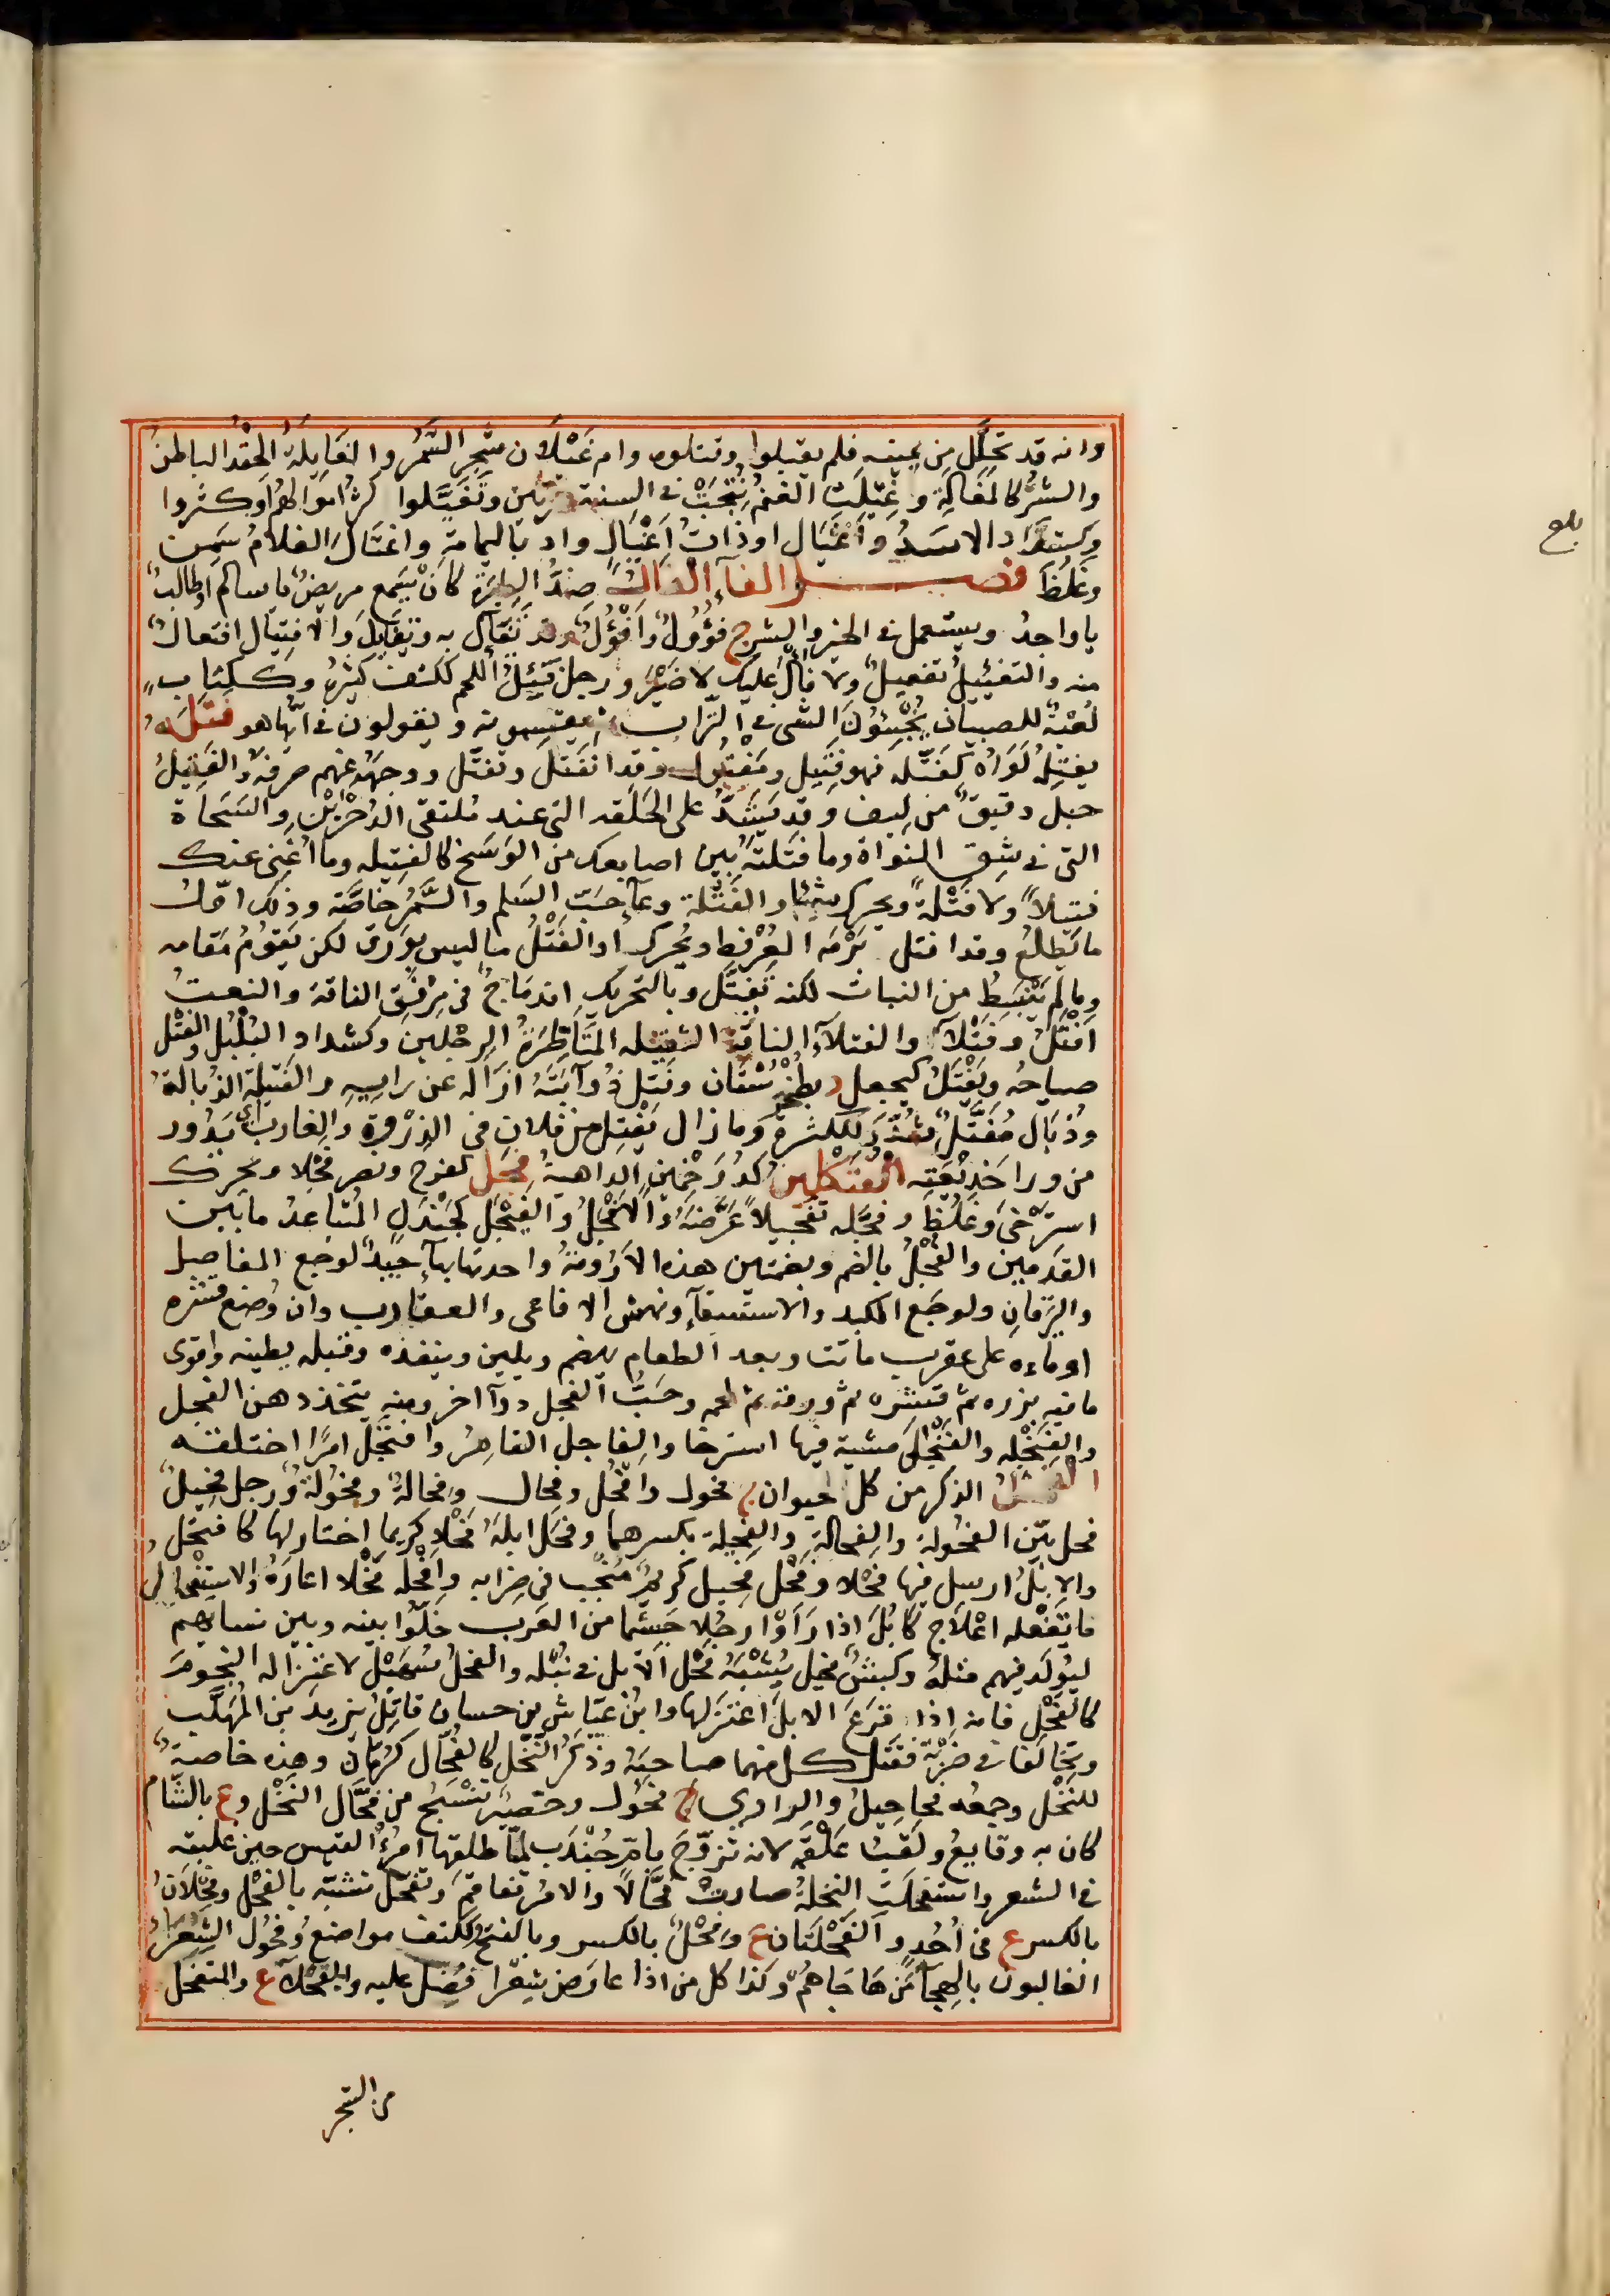 وانه قد تحلل من يمينه فلم يقبلوا وقتلوه وام غَيْلان شجر السَّمُر والغايلة الحقد الباطن
والشر كالمغالة وغِيلَت الغنم نُتِجَتْ في السنة مرتين وتَغَيَّلوا كثر اموالهم او كثروا
وكشداد الاسد و اَغْيَال او ذات اَغْيَال واد باليمامة واغتال الغلام سَمِن
وغَلُظَ فصل الفآء الفال ضد الطيرة كان يسمع مريض ياسالم او طالب
يا واجد ويستعمل في الخير والشر ج فُؤُول واَفْؤُل وقد تَفَأَّل به وتفايل والافتيال افتعال
منه والتفئيل تفعيل ولا فَال عليك لا ضَيْرَ ورجل فَيْئِلُ اللحم ككتف كثيره وككتاب
لعبة للصبيان يُخَبِّئُونَ الشى فى التراب ثم يقتسمونه ويقولون فى ايها هو فتله
يفتِله لواه كفتّله فهو فتيل ومفتول وقد انفتل وتفتّل ووجهَه عنهم صرفه والفتيل
حبل دقيق من ليف وقد يُشَدّ على الحلقه التى عند ملتقى الدُجْرَيْن والسَحَاة
التى فى شِق النواة وما فَتَلتَه بين اصابعك من الوَسَخ كالفتيله وما اغنى عنك
فتيلاً ولا فَتْلةً ويحرك شيئا والفَتْلة وعآ حَبّ السَلَم والسَّمُر خاصّة وذلك اوّل
ما يَطلع وقد افتل بَرَمَه العُرْفُط ويُحرك او الفَتْلُ ما ليس بورق لكن يقوم مقامه
وما لم يَنْبَسِطُ من النبات لكنه تَفتَّل وبالتحريك اندِمَاج فى مِرْفَق الناقة والنعت
اَفْتَل وفَتْلآ والفتلآء الناقة الثقيله المتأطرة الرجلين وكشداد البُلْبُل والفَتْل
صياحه ويَفْتَلُ كيجعل د بطخيرستان وفتل ذوآبته ازاله عن رايه والفتيلة الذبالة
وذُبَال مُفَتَّل شُدّد للكثرة وما زال يَفْتِل من فلان فى الذروة والغارب اى يَدُور
من ورا خديعته الفتكلين كدُرَخْمِين الداهية فجل كفرح ونصر فَجْلا ويحرك
استرخى وغَلُظ و فجّله تفجيلاً عَرَّضَه والافجل والفيجل كجندل المتباعد ما بين
القدمين والفجل بالضم وبضمتين هذه الارومة واحدتها بهآء جيد لوجع المفاصل
واليرقان ولوجع الكبد والاستسقآء ونهش الافاعى والعقارب وان وُضع قشره
او ماءه على عقرب ماتت وبعد الطعام يهضم ويلين وينفذه وقبله يطفيه واقوى
ما فيه بزره ثم قشره ثم ورقه ثم لحمه وحَبّ الفجل دوآ اخر ومنه يتخذ دهن الفجل
والفَنْجَله والفَنْجَلَى مشية فيها استرخا والفاجل القامِر وافتجل امرًا اختلقه
الفحل الذكر من كل حيوان ج فحول وافحُل وفِحال وفِحالة وفُحُولة ورجل فحيل
فحل بيّن الفحُولة والفِحالة والفِحلة بكسرهما وفحَل ابلَه فَحْلا كريما اختار لها كافتحل
والابلَ ارسل فيها فَحْلا وفَحْل فحيل كريم مُنْجِب فى ضِرابه وافْحَله فَحْلا اعارَه والاستفحال
ما يَفْعله اعْلاج كابُلَ اذا رَأَوْا رجُلا جَسِيْما من العرب خلّوا بينه وبين نسايهم
ليُولَد فيهم مثلُه وكبشٌ فحيل يُشْبَهُ فَحْل الابل فى نُبْله والفحلُ سُهَيْل لاعتزاله النجومَ
كالفَحْل فانه اذا قَرَعَ الابلَ اعتزلها وابنُ عيّاش بن حسان قاتِل يزيد بن المُهَلَّب
وتخالفا فى ضَرْبَة فقتل كل منهما صاحبَه وذَكَرُ النَّخْل كالفُحّال كرمّان وهذه خاصة
للنخل وجمعه فحاحيلُ والراوى ج فحُول وحَصِيْر تُنْسَجُ من فُحَّال النَخْل وع بالشام
كان به وقايعُ ولَقَبُ عَلْقَمَة لانه تزوّج بامّ جُنْدَب لمّا طلقها امرُؤُ القيس حين غلبته
فى الشعر واستفحلت النخلة صارت فُحَّالاً والامر تفاقم وتفَحّل تشبّه بالفحل وفِحْلان
بالكسر ع فى اُحُد والفَحْلتان ع وفِحْل بالكسر وبالفتح وككتف مواضع وفُحُول الشعراء
الغالبون بالهِجآء مَن هَاجَاهُم وكذا كل من اذا عارض شِعْرا فُضّل عليه والفَحْلآء ع والمتفحل
من الشجر
بلغ